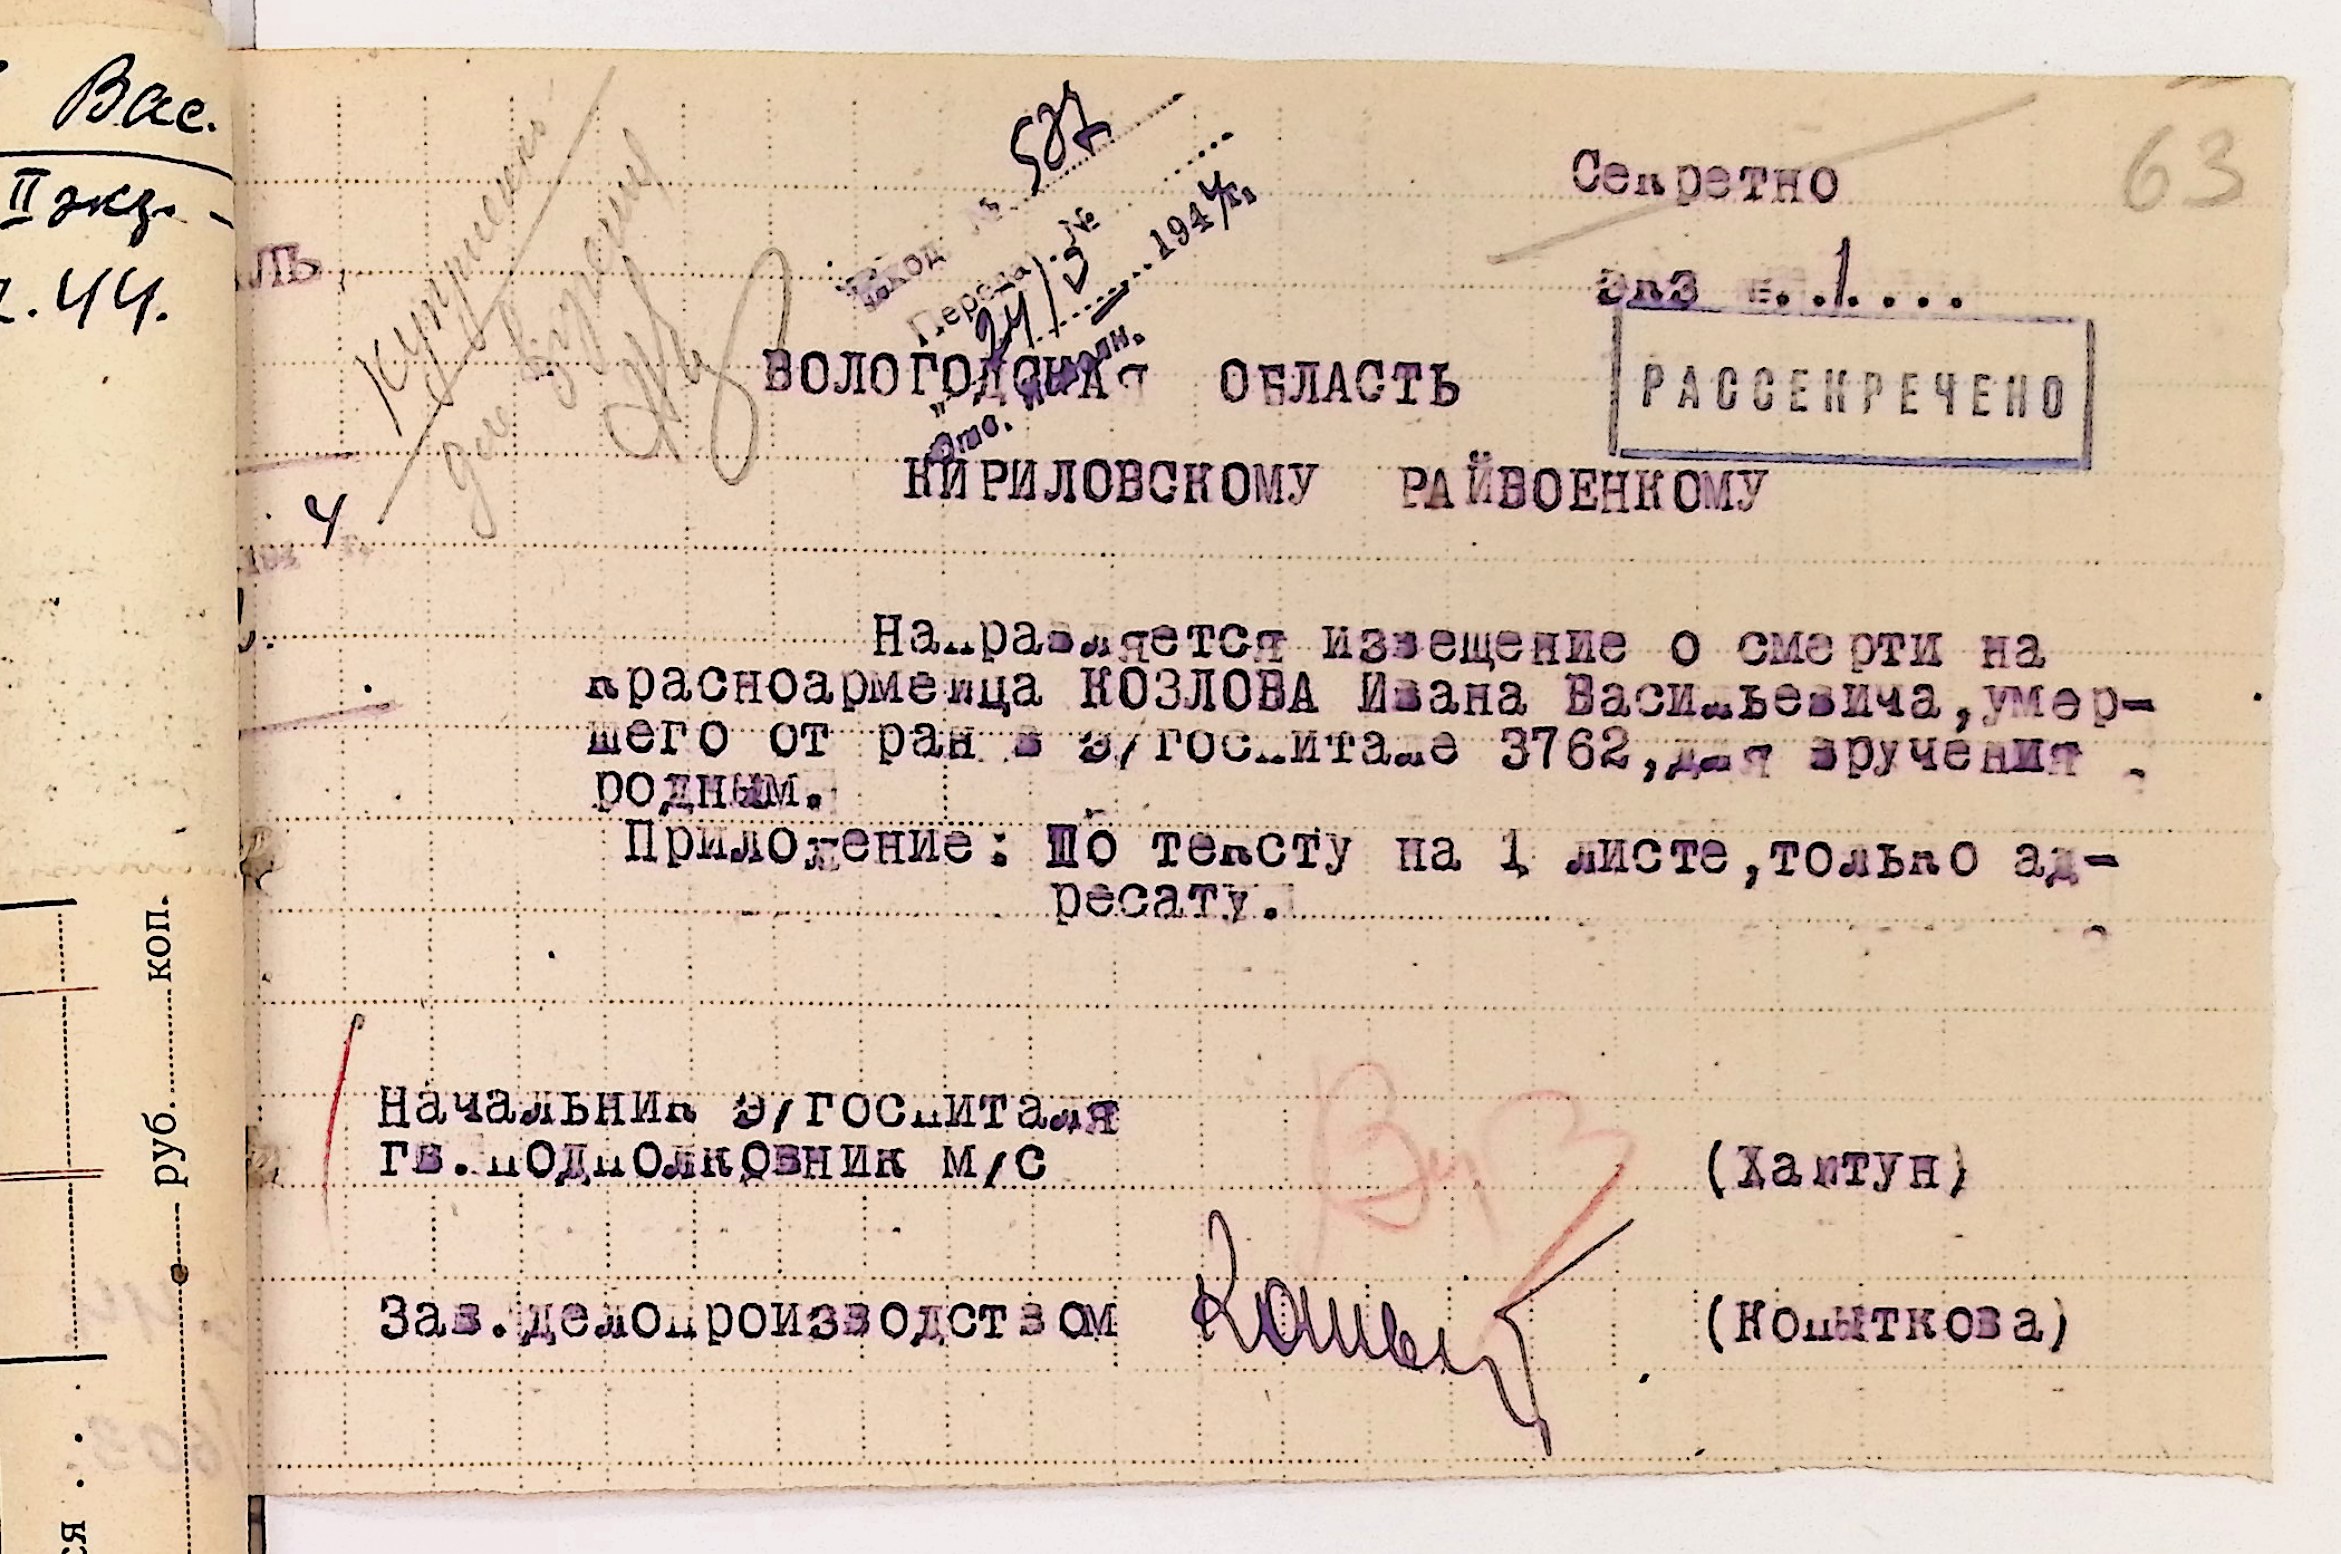 Вас.
II экз.
44.
63
Секретно
экз №.1....
РАССЕКРЕЧЕНО
Вход №
Передан №
24/3 1944 г.
ВОЛОГОДСКАЯ ОБЛАСТЬ
КИРИЛОВСКОМУ РАЙВОЕНКОМУ
ЛЬ
4
Направляется извещение о смерти на
красноармейца КОЗЛОВА Ивана Васильевича,умер-
шего от ран в э/госпитале 3762,для вручения
родным.
Приложение: По тексту на 1 листе,только ад-
ресату.
Начальник э/госпиталя
Гв.подполковник м/с
(Хайтун)
Зав.делопроизводством
(Копыткова)
руб. коп.